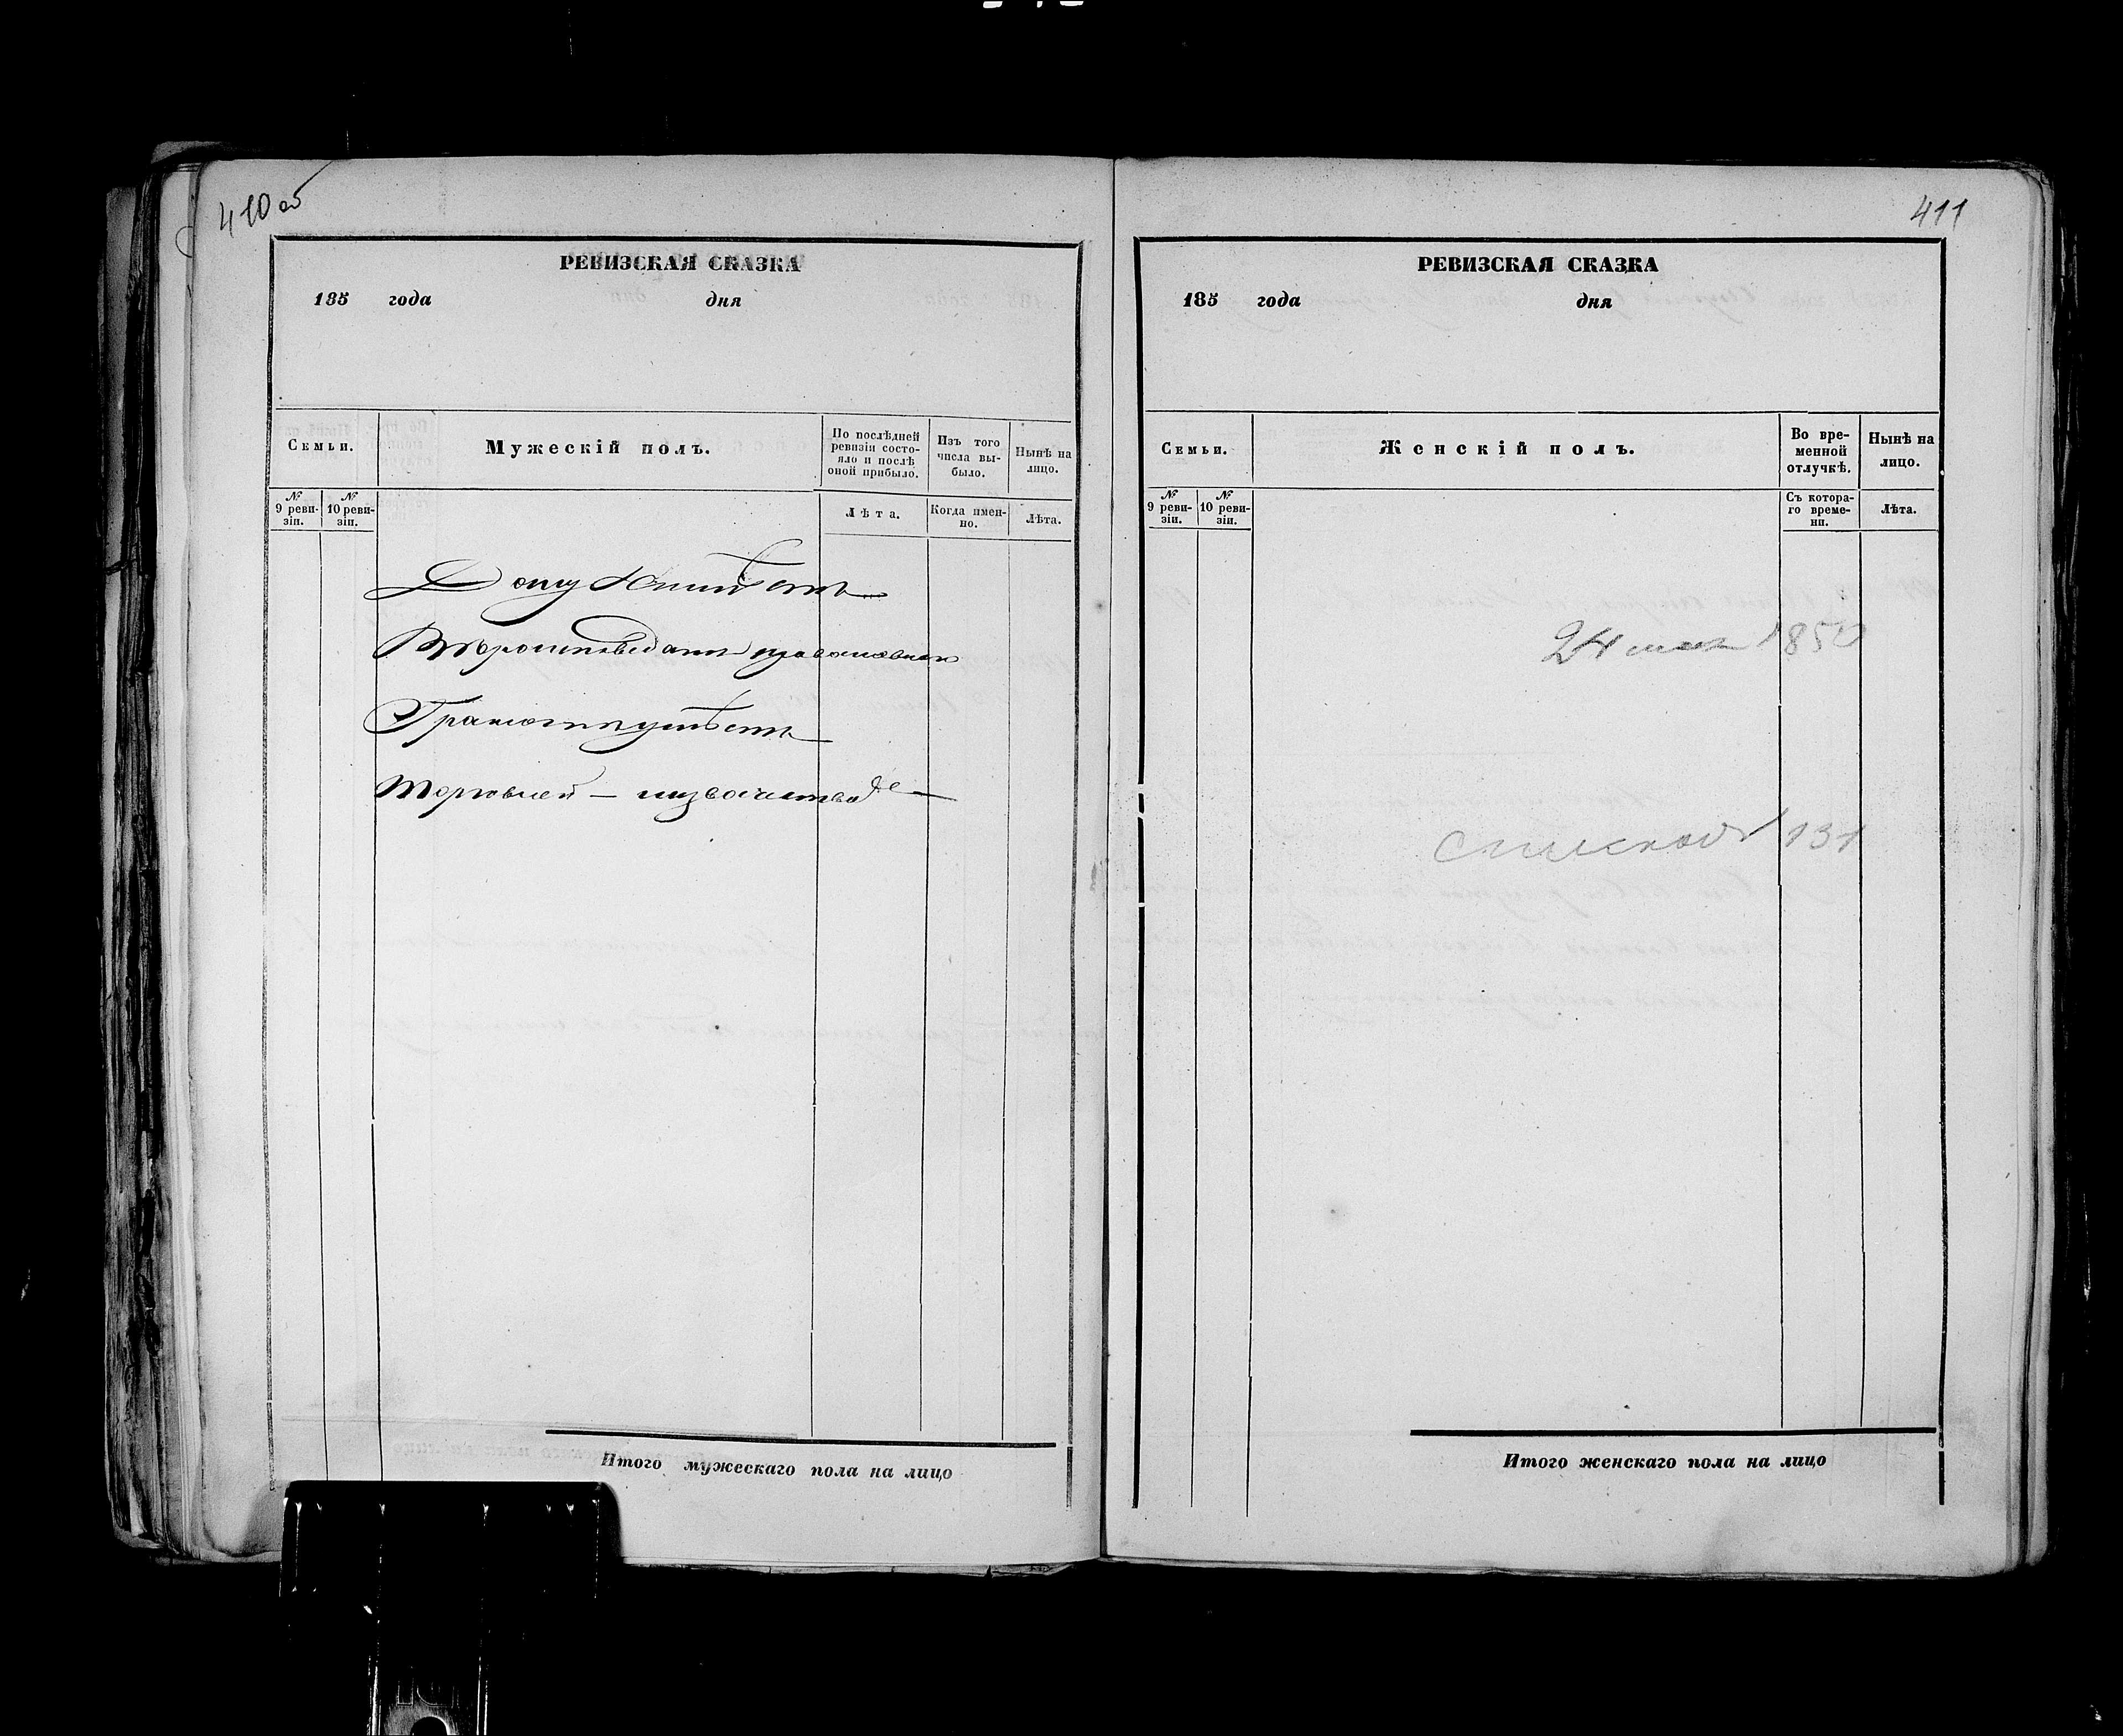 410 об
РЕВИЗСКАЯ СКАЗКА
185 года дня
Семьи.
Мужескій полъ.
По послѣдней ревизіи состояло и послѣ оной прибыло.
Изъ того числа выбыло.
Нынѣ на лицо.
№ 9 ревизіи.
№ 10 ревизіи.
Лѣта.
Когда именно.
Лѣта.
Дому Неимѣетъ
Вѣроисповѣданія православнаго
Грамотѣ неумѣетъ
Торговлей —
Итого мужескаго пола на лицо
411
РЕВИЗСКАЯ СКАЗКА
185 года дня
Семьи.
Женскій полъ.
Во временной отлучкѣ.
Нынѣ на лицо.
№ 9 ревизіи.
№ 10 ревизіи.
Съ котораго времени.
Лѣта.
24 мая 185
131
Итого женскаго пола на лицо